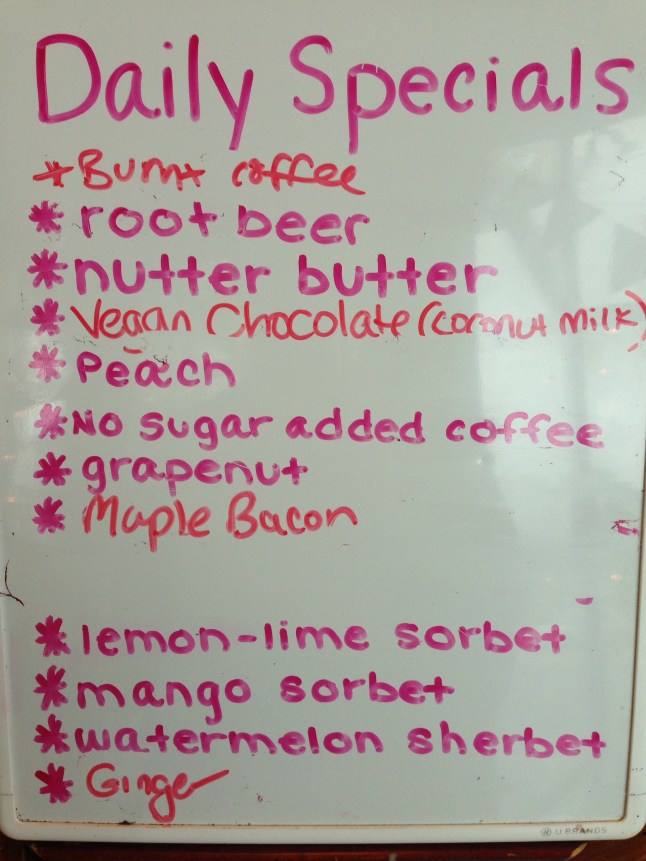 Daily Specials
* Burnt coffee
* root beer
* nutter butter
* Vegan Chocolate (coconut milk)
* Peach
* No sugar added coffee
* grapenut
* Maple Bacon
* lemon-lime sorbet
* mango sorbet
* watermelon sherbet
* Ginger
U BRANDS